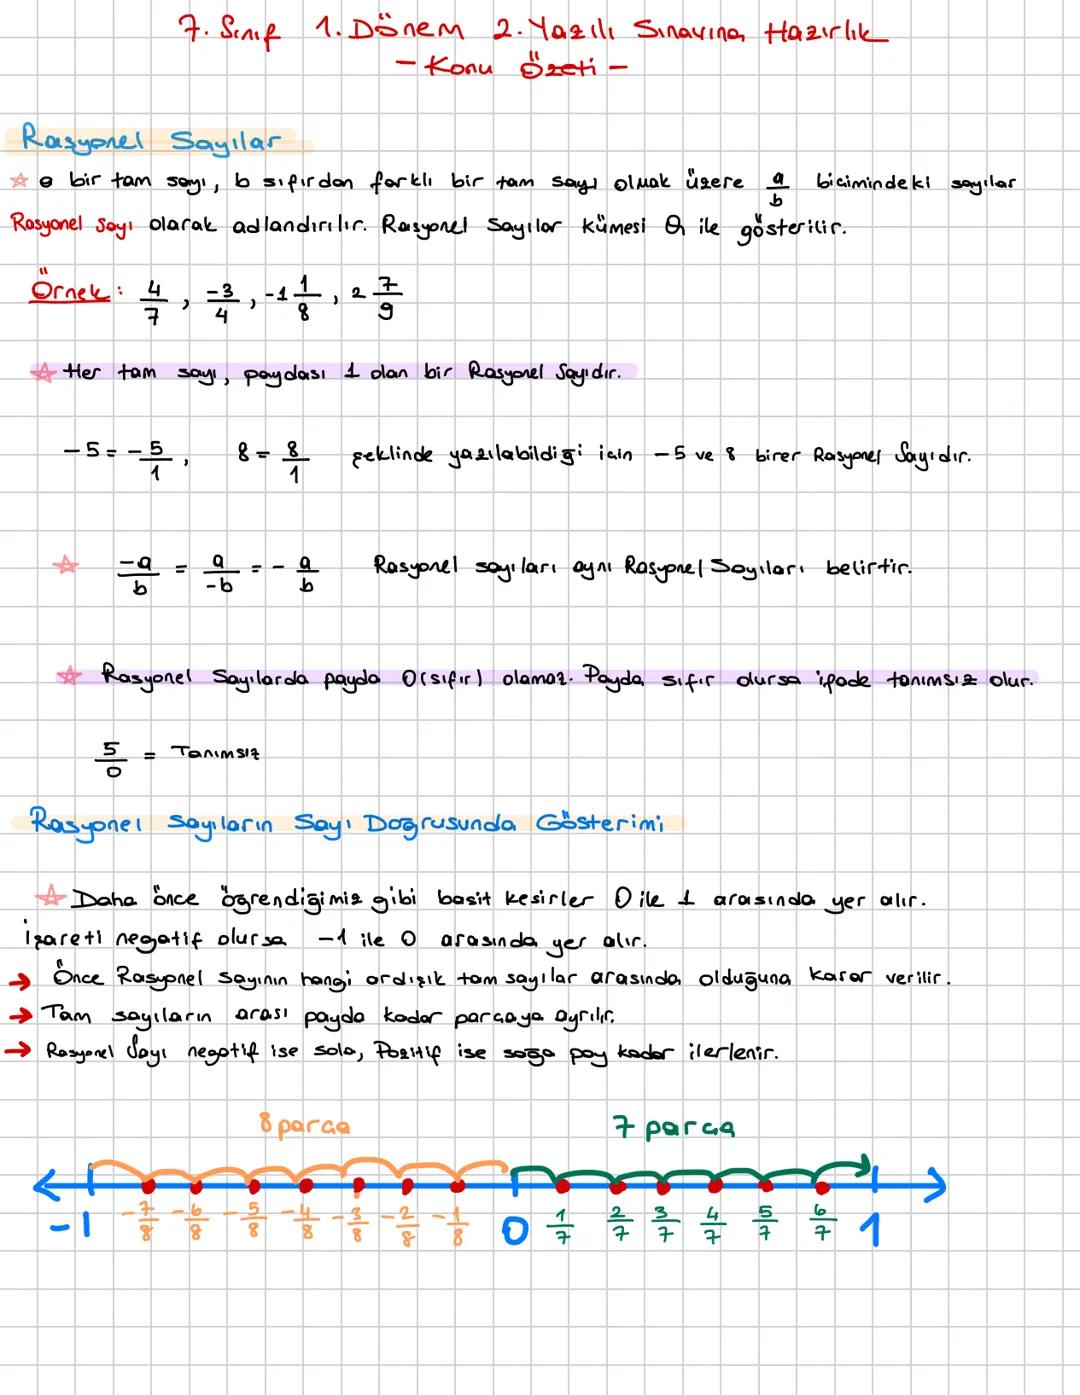 7. Sınıf 1. Dönem 2. Yazılı Sınavına Hazırlık
- Konu Özeti -
Rasyonel Sayılar
☆ a bir tam sayı, b sıfırdan farklı bir tam sayı olmak üzere a/b biçimindeki sayılar
Rasyonel Sayı olarak adlandırılır. Rasyonel Sayılar kümesi Q ile gösterilir.
Örnek: 4/7, -3/4, -1 1/8, 2 7/9
☆ Her tam sayı, paydası 1 olan bir Rasyonel Sayıdır.
-5 = -5/1, 8 = 8/1 şeklinde yazılabildiği için -5 ve 8 birer Rasyonel Sayıdır.
☆ -a/b = a/-b = - a/b Rasyonel sayıları aynı Rasyonel Sayıları belirtir.
☆ Rasyonel Sayılarda payda 0(sıfır) olamaz. Payda sıfır olursa ifade tanımsız olur.
5/0 = Tanımsız
Rasyonel Sayıların Sayı Doğrusunda Gösterimi
☆ Daha önce öğrendiğimiz gibi basit kesirler 0 ile 1 arasında yer alır.
İşareti negatif olursa -1 ile 0 arasında yer alır.
→ Önce Rasyonel sayının hangi ardışık tam sayılar arasında olduğuna karar verilir.
→ Tam sayıların arası payda kadar parçaya ayrılır.
→ Rasyonel Sayı negatif ise sola, Pozitif ise sağa pay kadar ilerlenir.
8 parça 7 parça
-1 -7/8 -6/8 -5/8 -4/8 -3/8 -2/8 -1/8 0 1/7 2/7 3/7 4/7 5/7 6/7 1